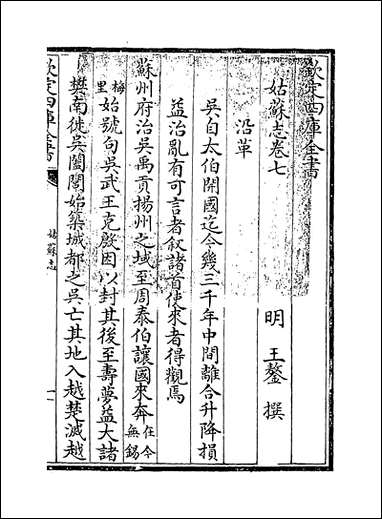 欽定四庫全書
姑蘇志卷七
明 王鏊 撰
沿革
吳自太伯開國迄今幾三千年中間離合升降損
益治亂有可言者叙諸首使來者得觀焉
蘇州府治吳禹貢揚州之域至周泰伯讓國來奔在今無錫
梅里始號句吳武王克殷因以封其後至壽夢益大諸
樊南徙吳闔閭始築城都之吳亡其地入越楚滅越
欽定四庫全書
姑蘇志
一